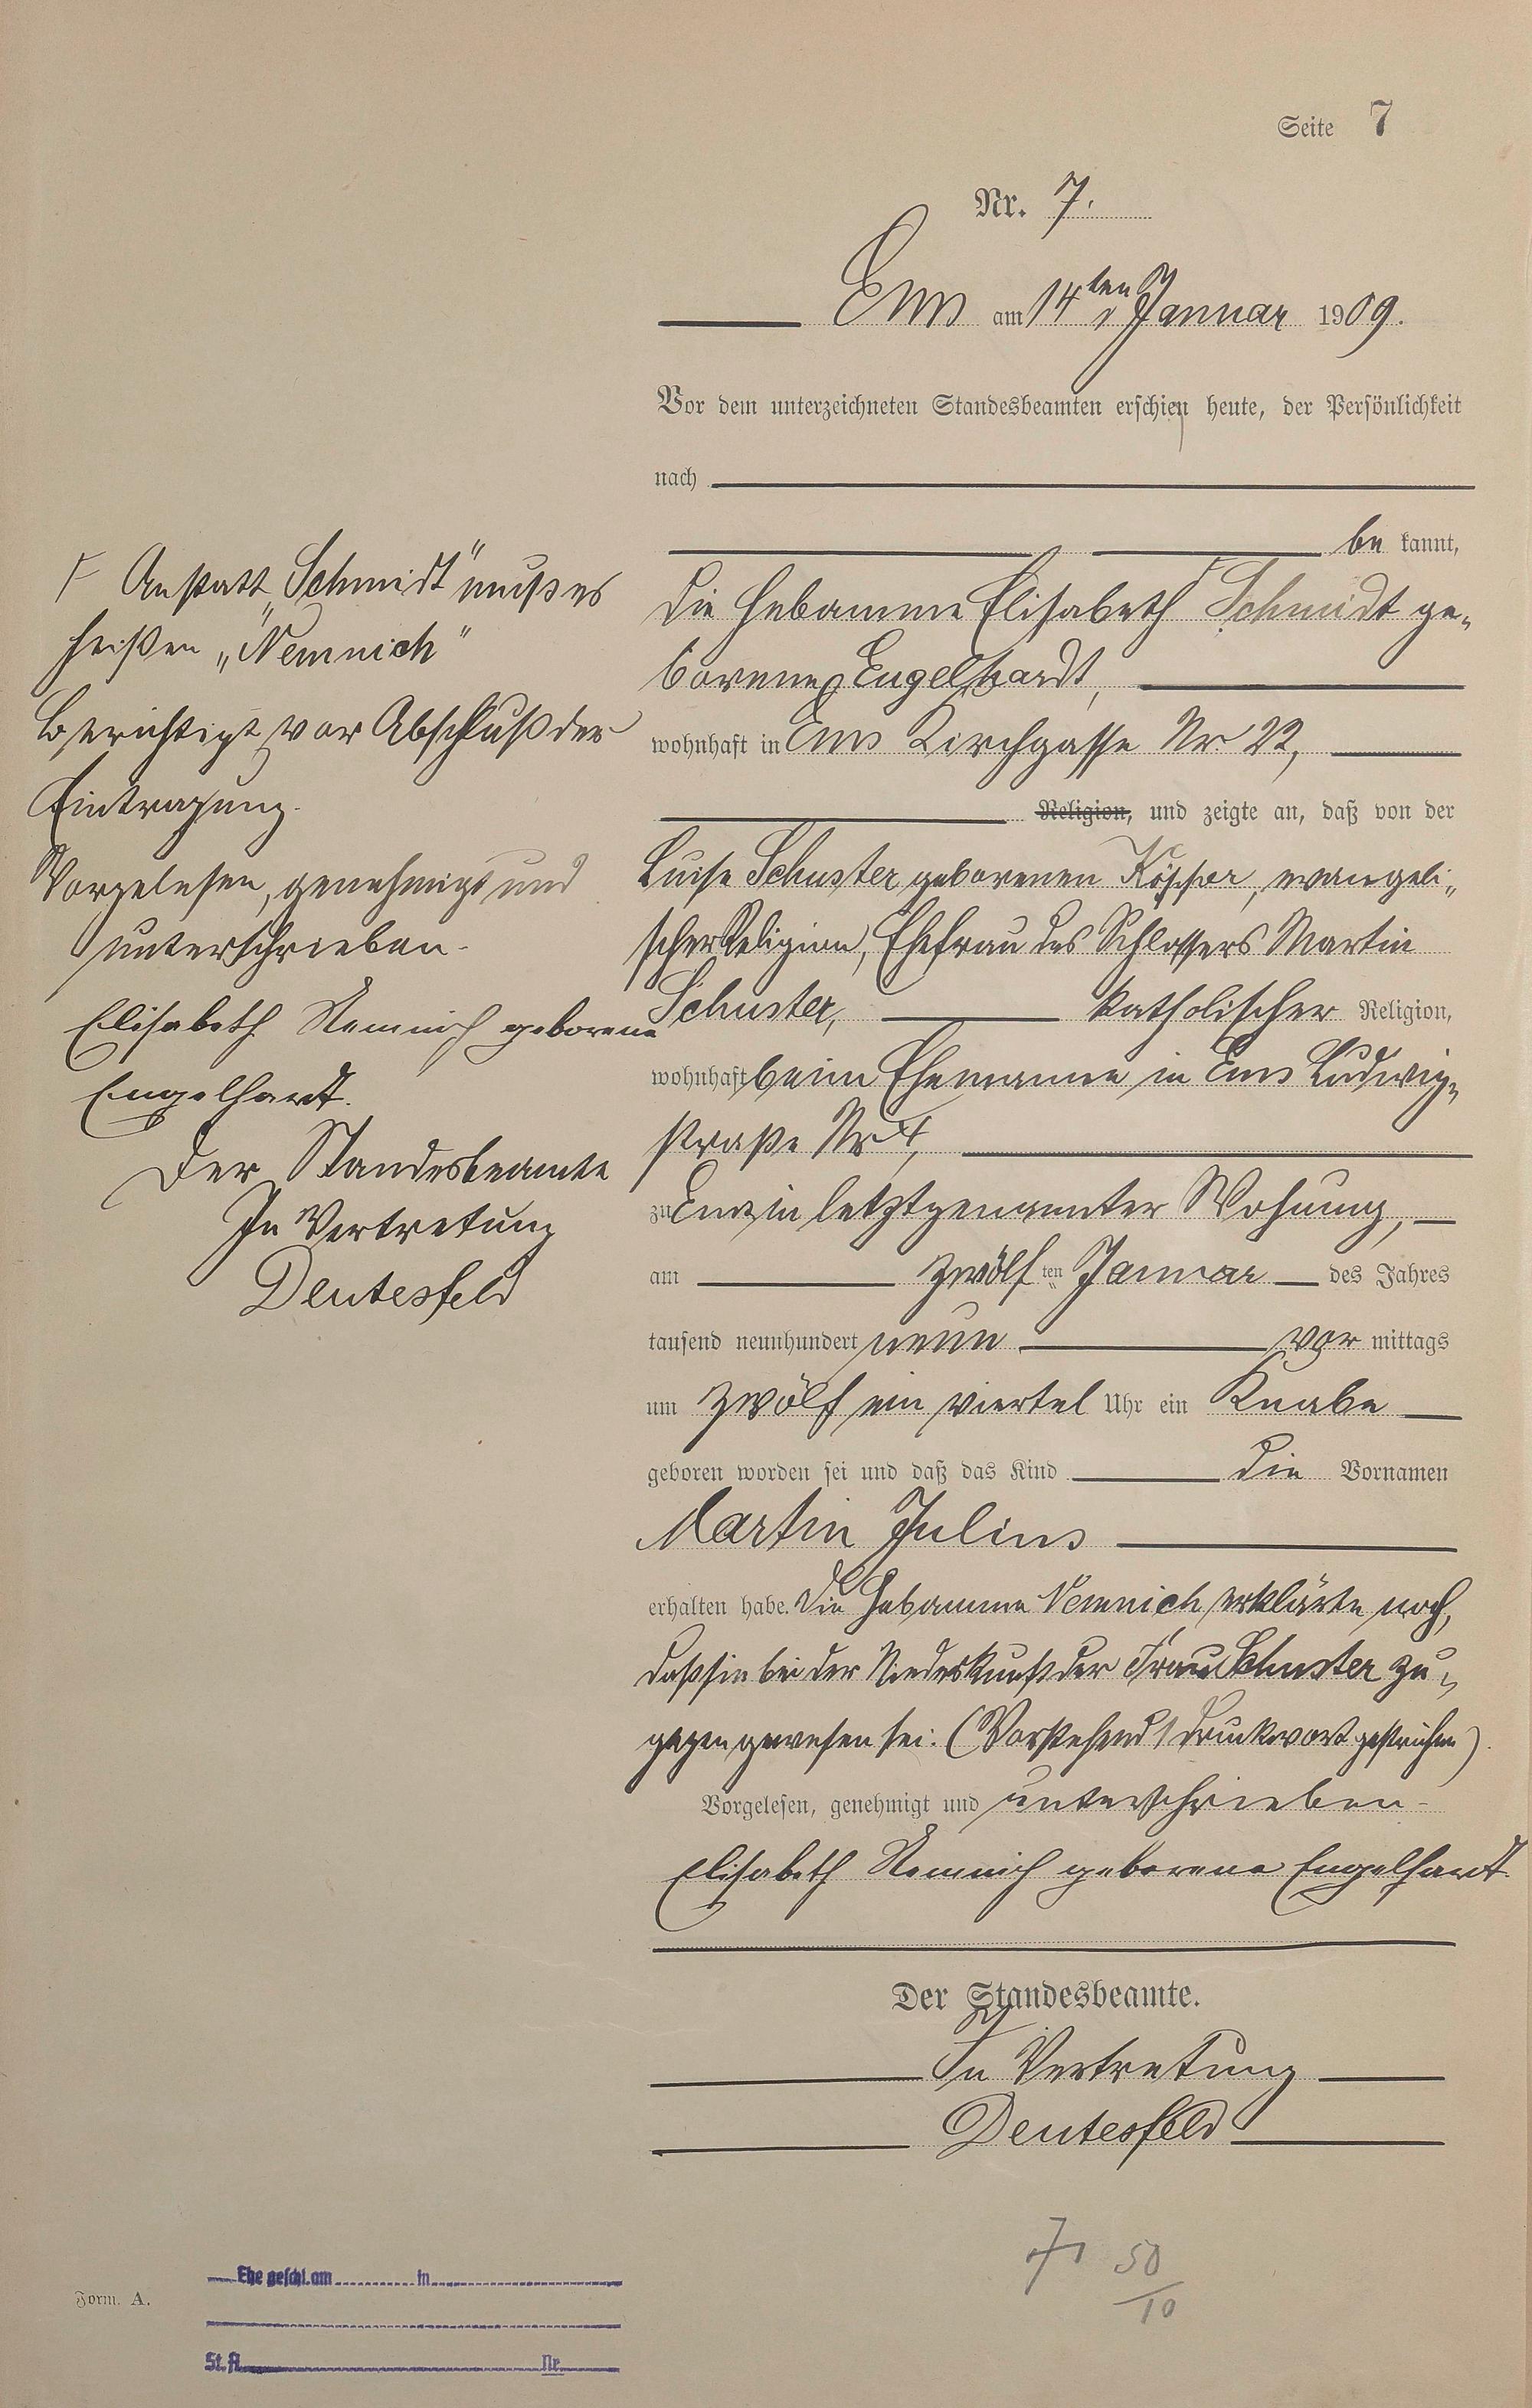 Seite 7
Nr. 7.
Ems am 14ten Januar 1909.
Vor dem unterzeichneten Standesbeamten erschien heute, der Persönlichkeit
nach
be kannt,
die Hebamme Elisabeth Schmidt ge-
borene Engelhardt,
wohnhaft in Ems Kirchgasse Nr 22,
Religion, und zeigte an, daß von der
Luise Schuster geborenen, evangeli-
scher Religion, Ehefrau des Schlossers Martin
Schuster, katholischer Religion,
wohnhaft beim Ehemanne in Ems Ludwig-
straße Nr 4,
zu Ems in letztgenannter Wohnung,
am zwölf ten Januar des Jahres
tausend neunhundert neun vor mittags
um zwölf ein viertel Uhr ein Knabe
geboren worden sei und daß das Kind die Vornamen
Martin Julius
erhalten habe. Die Hebamme Nemnich erklärte noch,
daß sie bei der Niederkunft der Frau Schuster zu-
gegen gewesen sei. (Vorstehend 1 Druckwort gestrichen).
Vorgelesen, genehmigt und unterschrieben.
Elisabeth Nemnich geborene Engelhardt.
Der Standesbeamte.
In Vertretung
Deutesfeld
Anstatt „Schmidt" muß es
heißen „Nemnich"
Berichtigt vor Abschluß der
Eintragung.
Vorgelesen, genehmigt und
unterschrieben.
Elisabeth Nemnich geborene
Engelhardt.
Der Standesbeamte
In Vertretung
Deutesfeld
50
10
Form. A.
Ehe geschl. am in
St. A. Nr.